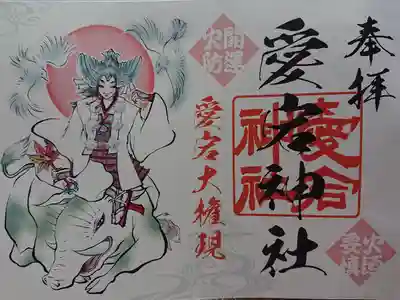 奉拝
愛宕神社
愛宕
神社
火廼
要慎
開運
火防
愛宕大権現